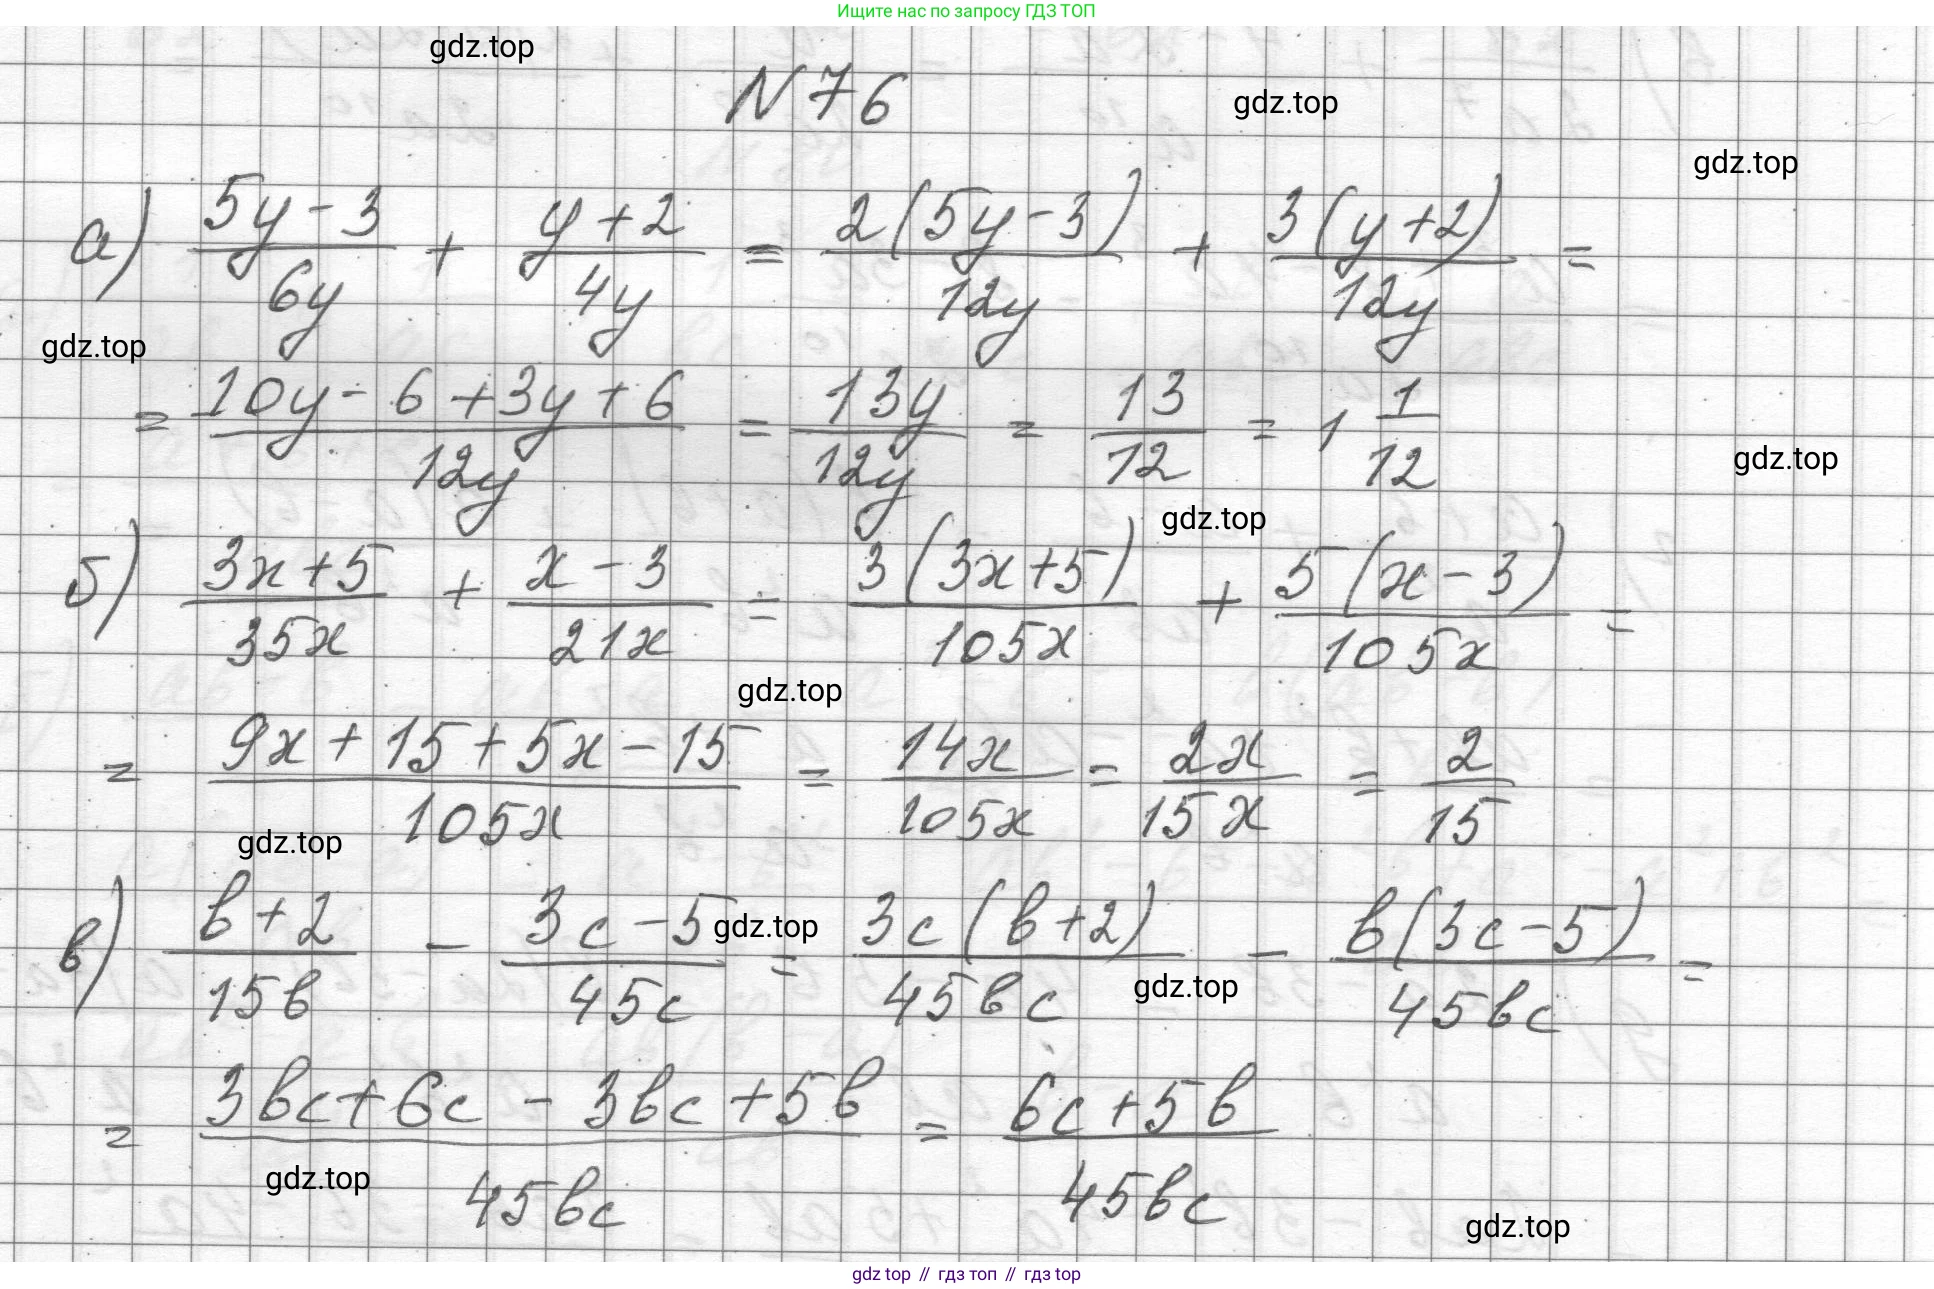 Ищите нас по запросу ГДЗ ТОП
gdz.top
N76
gdz.top
gdz.top
а) (5y-3)/(6y) + (y+2)/(4y) = 2(5y-3)/(12y) + 3(y+2)/(12y) =
gdz.top
= (10y-6+3y+6)/(12y) = 13y/12y = 13/12 = 1 1/12
gdz.top
gdz.top
б) (3x+5)/(35x) + (x-3)/(21x) = 3(3x+5)/(105x) + 5(x-3)/(105x) =
gdz.top
= (9x+15+5x-15)/(105x) = 14x/105x = 2x/15x = 2/15
gdz.top
в) (в+2)/(15в) - (3с-5)/(45с) = 3с(в+2)/(45вс) - в(3с-5)/(45вс) =
gdz.top
gdz.top
= (3вс+6с-3вс+5в)/(45вс) = (6с+5в)/(45вс)
gdz.top
gdz.top
gdz top // гдз топ // гдз top